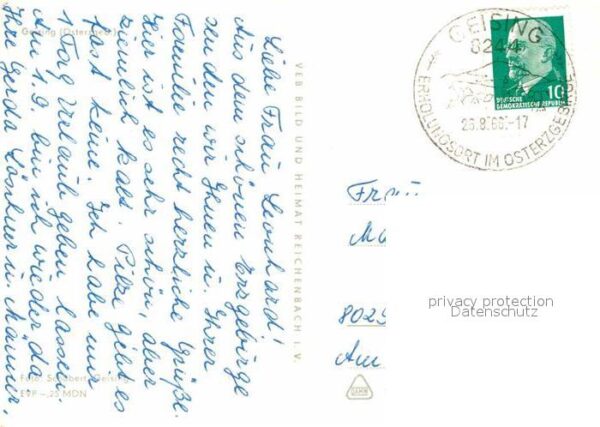 Geising (Osterzgeb.)
Liebe Frau Leonhard!
Aus dem schönen Erzgebirge
senden wir Ihnen u. Ihrer
Familie recht herzliche Grüße.
Hier ist es sehr schön, aber
ziemlich kalt. Pilze gibt es
fast keine. Ich habe mir
1 Tag Urlaub geben lassen.
Am 1.9. bin ich wieder da
Ihre Gerda Löschner u. Männer.
Foto: Schubert, Geising
EVP –,25 MDN
VEB BILD UND HEIMAT REICHENBACH I. V.
GEISING
8244
26.8.68.-17
ERHOLUNGSORT IM OSTERZGEBIRGE
10
DEUTSCHE
DEMOKRATISCHE REPUBLIK
Frau
8029
Am
privacy protection
Datenschutz